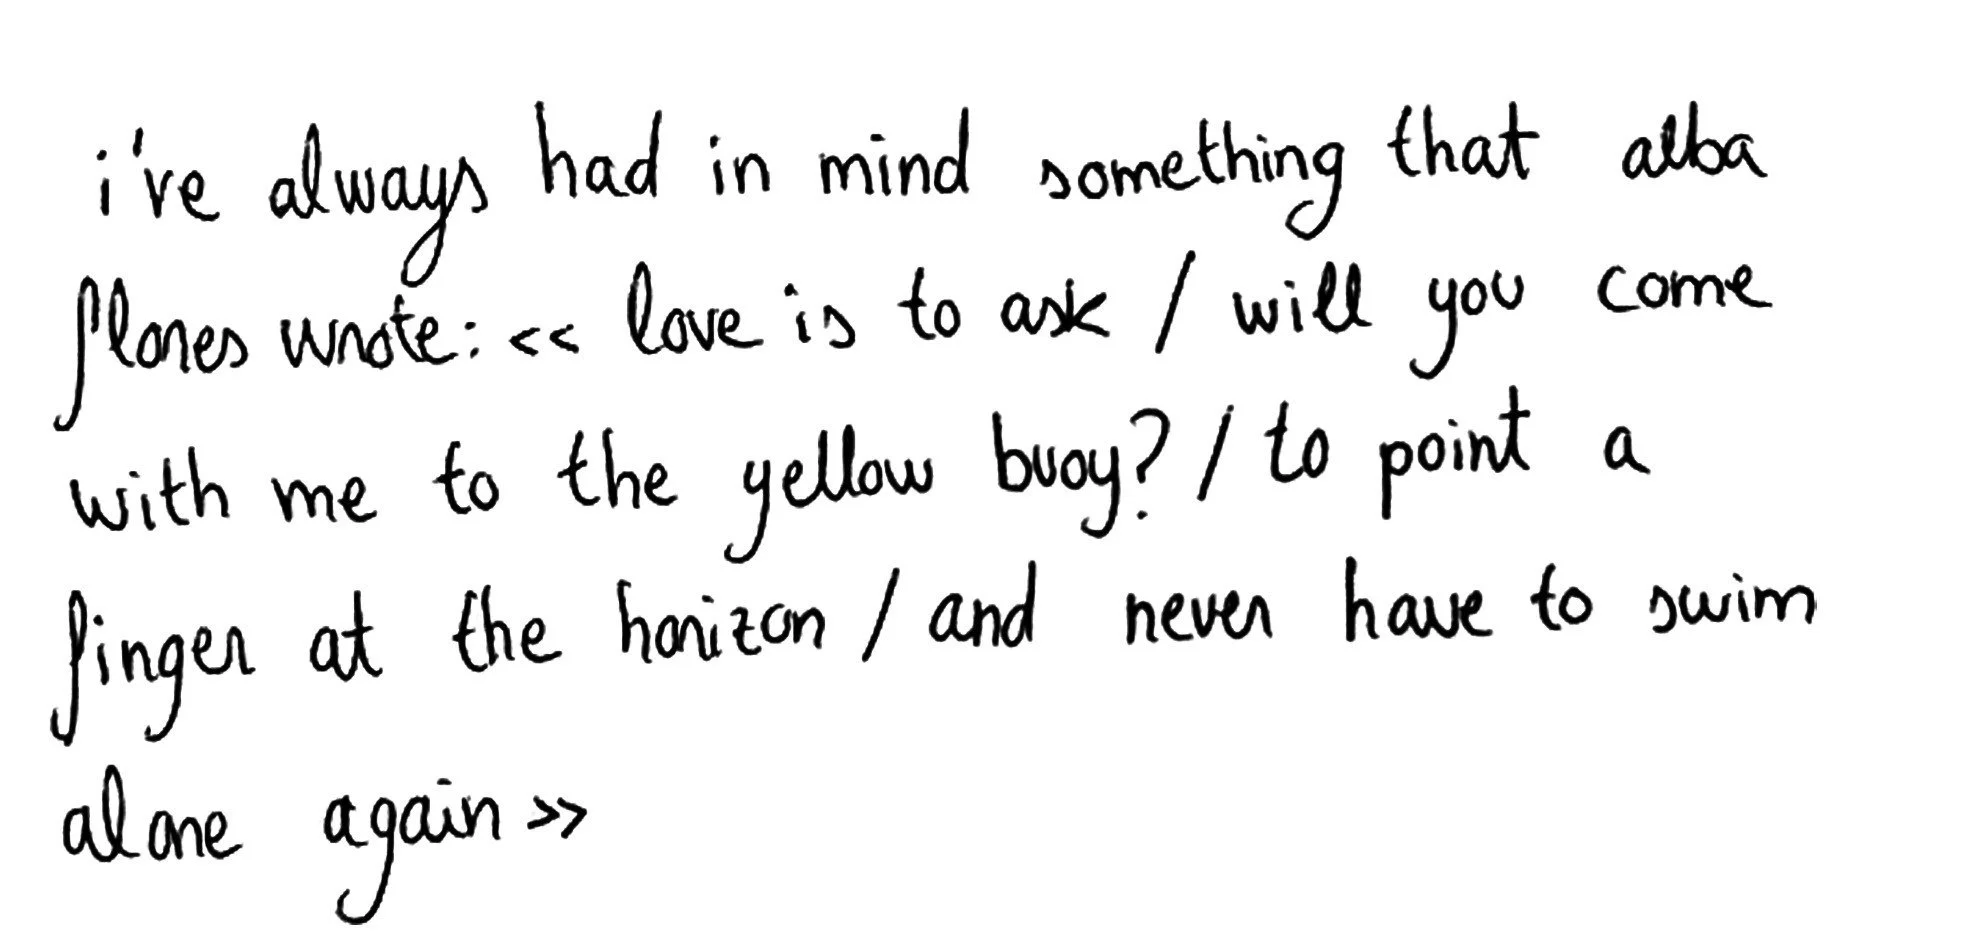 i've always had in mind something that alba
flores wrote: << love is to ask / will you come
with me to the yellow buoy? / to point a
finger at the horizon / and never have to swim
alone again >>